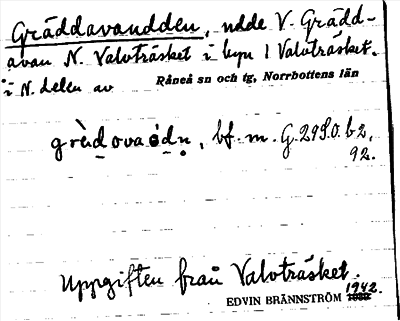 Gräddavandden, udde V. Grädd-
avan N. Valvträsket i byn 1 Valvträsket.
i N. delen av Råneå sn och tg, Norrbottens län
bf. m. G. 295. O. b 2,
92.
Uppgiften från Valvträsket.
EDVIN BRÄNNSTRÖM 1942.